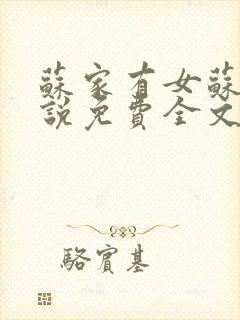 蘇家有女蘇
說免費全文
駱賓基